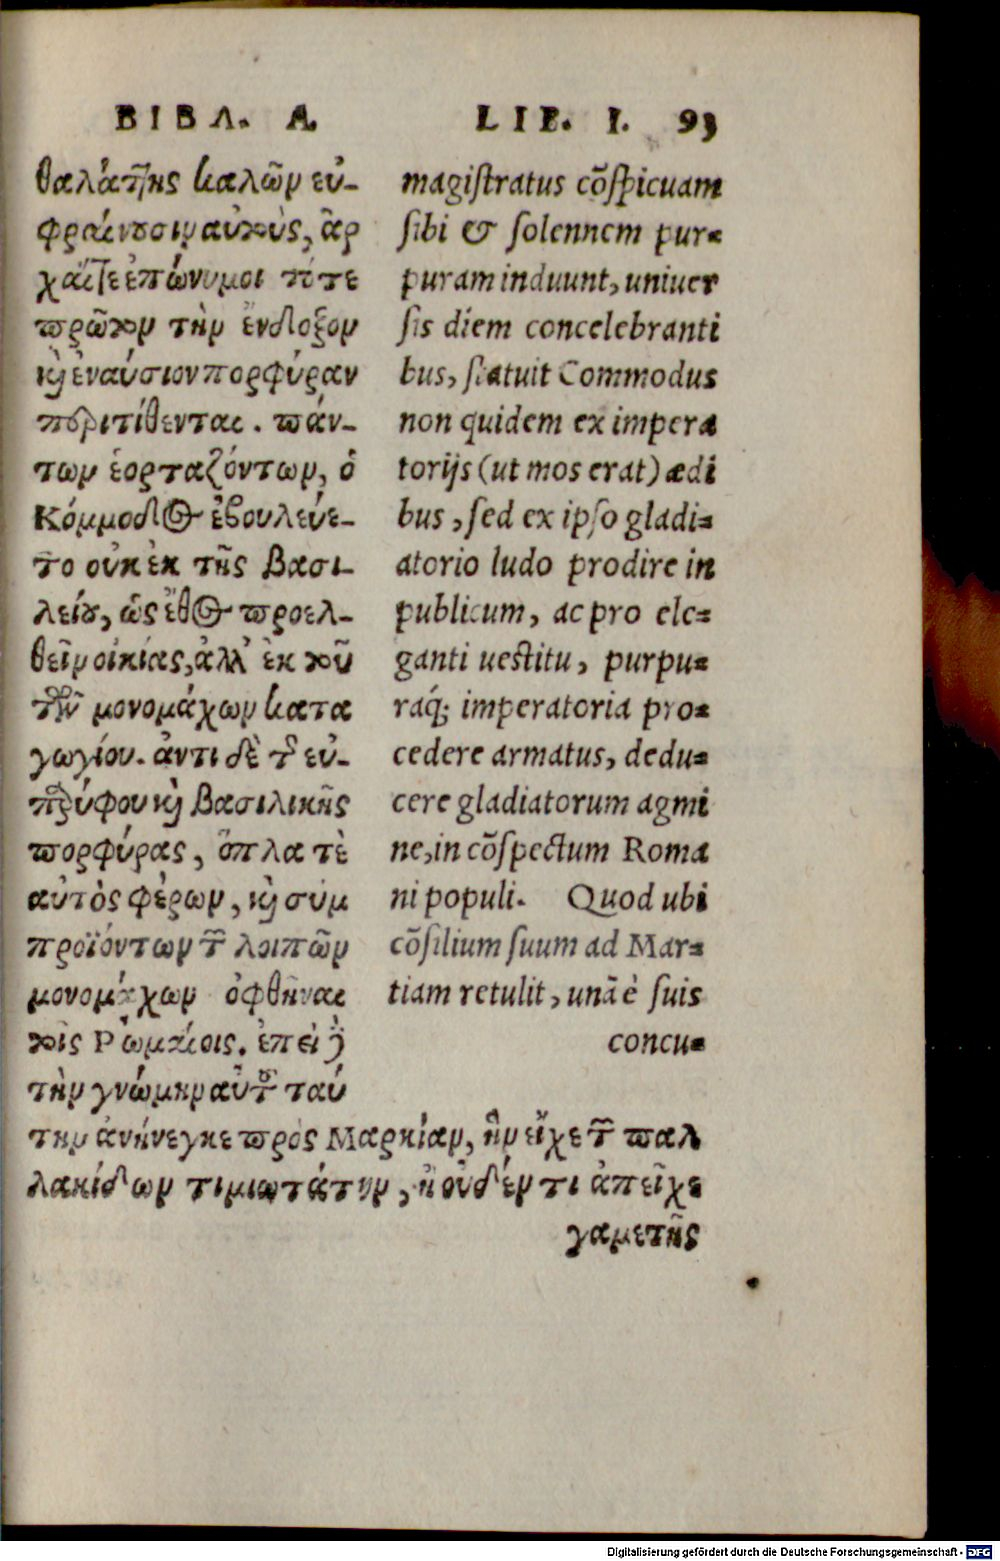 ΒΙΒΛ. Α. LIB. I. 93
θαλάττης καλῶν εὐ-
φραίνουσιν αὐτοὺς, ἄρ
χαί τε ἐπώνυμοι τότε
πρῶτον τὴν ἔνδοξον
καὶ ἐναύσιον πορφύραν
περιτίθενται. πάν-
των ἑορταζόντων, ὁ
Κόμμοδος ἐβουλεύε-
το οὐκ ἐκ τῆς βασι-
λείου, ὡς ἔθος προελ-
θεῖν οἰκίας, ἀλλ' ἐκ τοῦ
τῶν μονομάχων κατα
γωγίου. ἀντι δὲ τῆς εὐ-
παρύφου καὶ βασιλικῆς
πορφύρας, ὅπλα τὲ
αὐτὸς φέρων, καὶ συμ
προϊόντων τῶν λοιπῶν
μονομάχων ὀφθῆναι
τοῖς Ῥωμαίοις. ἐπεὶ δὲ
τὴν γνώμην αὐτοῦ ταύ
την ἀνήνεγκε πρὸς Μαρκίαν, ἣν εἶχε τῶν παλ
λακίδων τιμιωτάτην, ἣ οὐδέν τι ἀπεῖχε
γαμετῆς
magistratus cōspicuam
sibi & solennem pur-
puram induunt, uniuer
sis diem concelebranti
bus, statuit Commodus
non quidem ex impera
torijs (ut mos erat) ædi
bus, sed ex ipso gladi-
atorio ludo prodire in
publicum, ac pro ele-
ganti uestitu, purpu-
raq́; imperatoria pro-
cedere armatus, dedu-
cere gladiatorum agmi
ne, in cōspectum Roma
ni populi. Quod ubi
cōsilium suum ad Mar-
tiam retulit, unã è suis
concu-
Digitalisierung gefördert durch die Deutsche Forschungsgemeinschaft - DFG